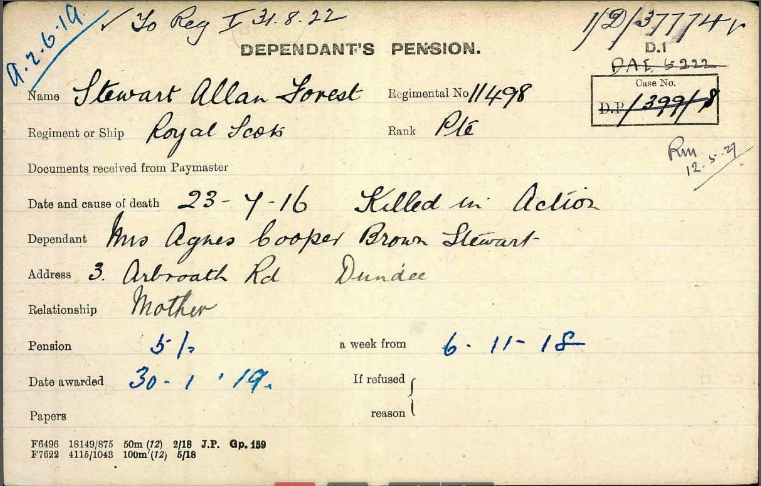 a.2.6.19.
✓ To Reg I 31.8.22
1/D/3777/4
DEPENDANT'S PENSION.
D.1
DAE 5222
Case No.
D.P/1399/18
Name Stewart Allan Forest Regimental No 11498
Regiment or Ship Royal Scots Rank Pte
Rm
12.5.27
Documents received from Paymaster
Date and cause of death 23-7-16 Killed in Action
Dependant Mrs Agnes Cooper Brown Stewart
Address 3. Arbroath Rd Dundee
Relationship Mother
Pension 5/- a week from 6-11-18
Date awarded 30-1-19. If refused
Papers reason
F6496 18149/875 50m (12) 2/18 J.P. Gp. 159
F7622 4115/1043 100m (12) 5/18